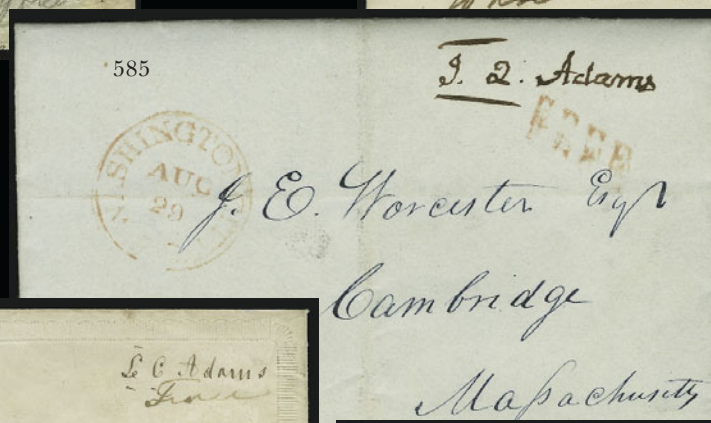 585
J. Q. Adams
FREE
WASHINGTON
AUG
29
J. E. Worcester Esqr
Cambridge
Massachusetts
L C Adams
Free